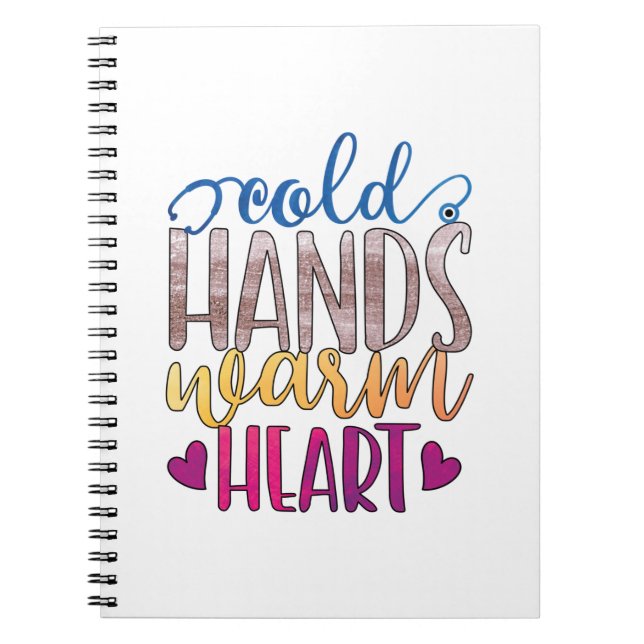 cold
HANDS
warm
HEART